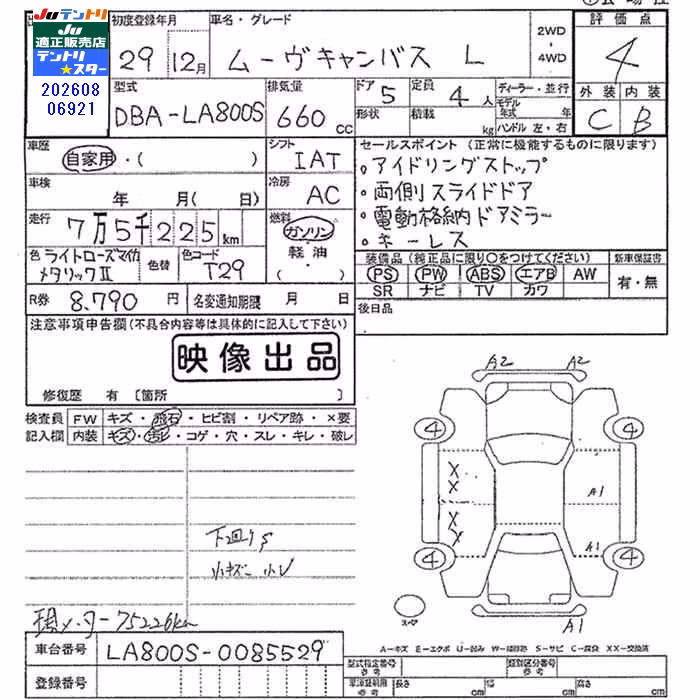 Juテントリ
Ju
適正販売店
テントリ
★スター
202608
06921
初度登録年月
29 12月
車名・グレード
ムーヴキャンバス L
2WD
・
4WD
評価点
4
外装 内装
C B
型式
DBA-LA800S
排気量
660 cc
ドア
5
形状
定員
4 人
積載
kg
ディーラー・並行
モデル
年式 年
ハンドル 左・右
車歴
自家用・( )
シフト
IAT
車検
年 月( 日)
冷房
AC
走行
7万5千225km
燃料
ガソリン
軽油
色 ライトローズマイカ
メタリックⅡ
色替
色コード
T29
R券 8,790 円
名変通知期限 月 日
セールスポイント (正常に機能するものに限ります)
・アイドリングストップ
・両側スライドドア
・電動格納ドアミラー
・キーレス
装備品 (純正品に限り○をつけてください)
PS PW ABS エアB AW
SR ナビ TV カワ
新車保証書
有・無
後日品
注意事項申告欄 (不具合内容等は具体的に記入して下さい)
映像出品
修復歴 有 〔箇所 〕
検査員
記入欄
FW キズ・飛石・ヒビ割・リペア跡・×要
内装 キズ・汚レ・コゲ・穴・スレ・キレ・破レ
A2 A2
4 4
X
X A1
X
X A1
4 4
スペア
A1
下回りS
小キズ 小レ
現メーター75226km
A-キズ E-エクボ U-凹み W-補修跡 S-サビ C-腐食 XX-交換済
車台番号 LA800S-0085529
登録番号
型式指定番号
参考
類別区分番号
参考
車混証明用
参考
長さ cm
幅 cm
高さ cm